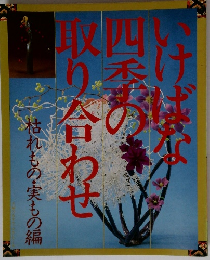 いけばな
四季の
取り合わせ
枯れもの・実もの編